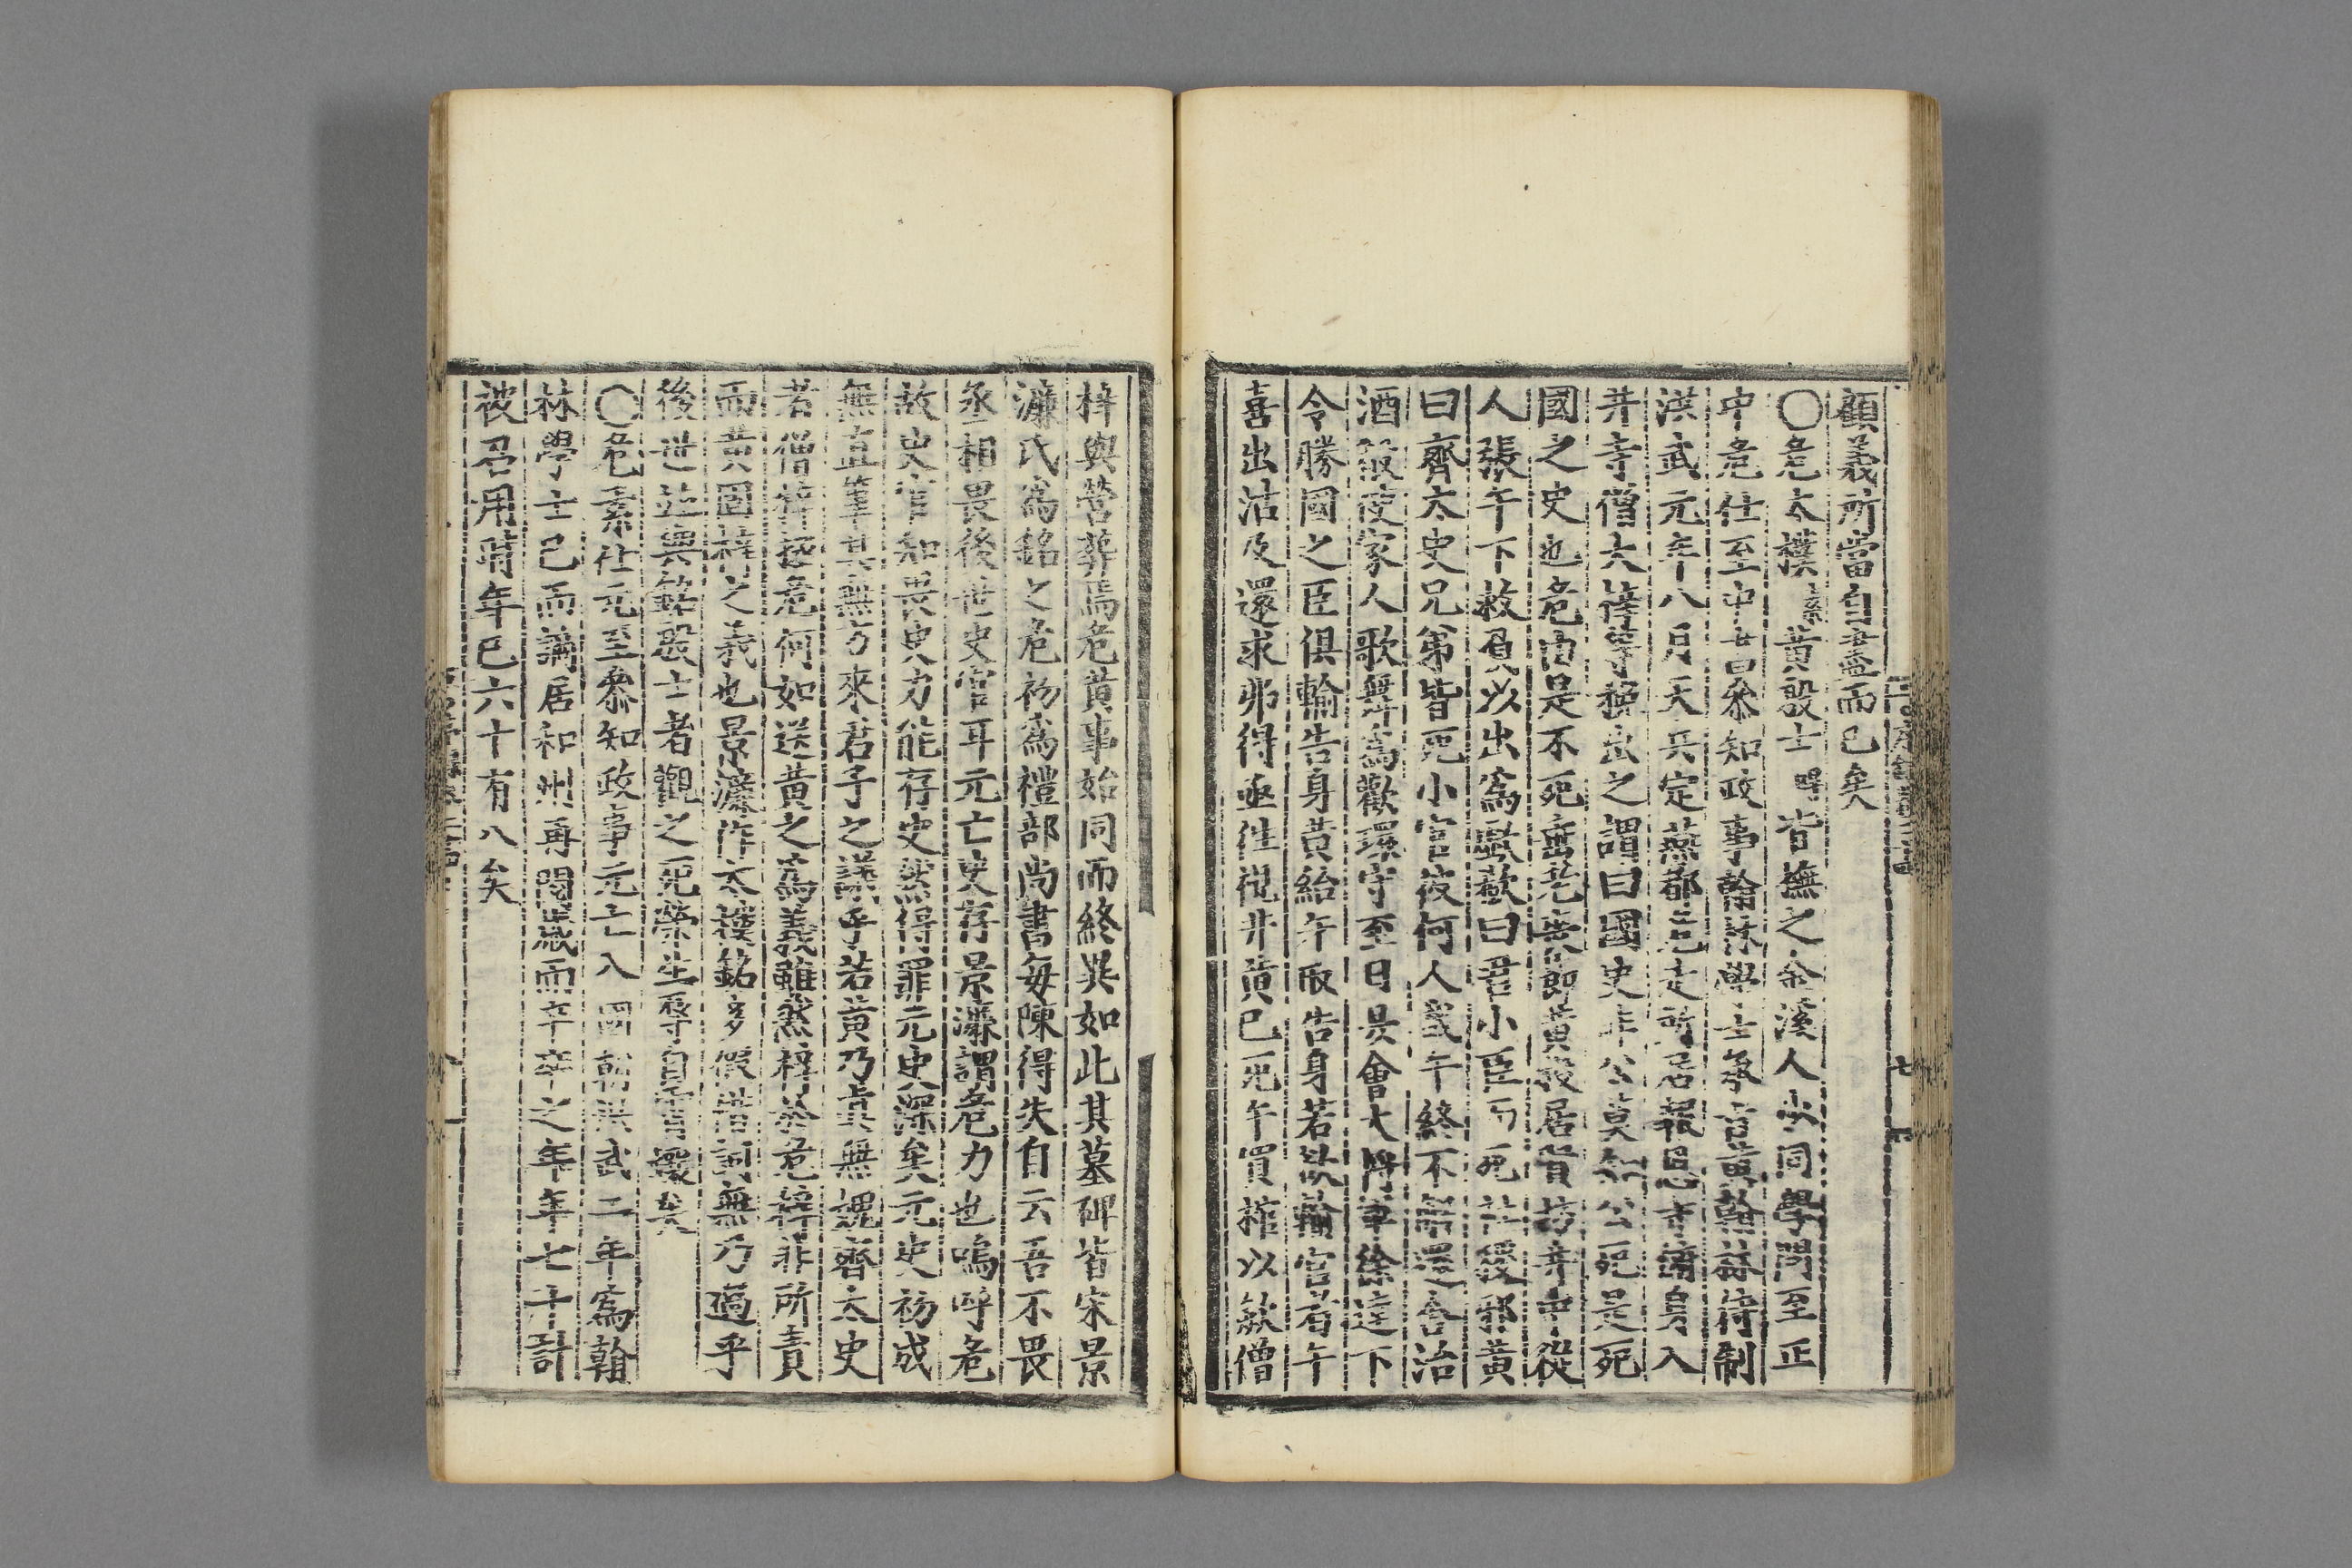 顧義所當自盡而已矣
〇危太樸素黃殷士皆撫之金溪人少同學問至正
中危仕至中書參知政事翰林學士承旨黃翰林待制
洪武元年八月天兵定燕都危走所居報恩寺脫身入
井寺僧大梓等挽出之謂曰國史非公莫知公死是死
國之史也危由是不死黃居賃坊寺中從
人張午下救負以出為歔欷曰君小臣而死社稷耶黃
曰齊太史兄弟皆死小官彼何人哉午終不能還舍治
酒殽使家人歌舞為歡環守至日昃會大將軍徐達下
令勝國之臣俱輸告身黃紿午取告身若欲輸官者午
喜出沽及還求弗得亟往視井黃已死午買棺以斂僧
梓與營葬焉危黃事始同而終異如此其墓碑皆宋景
濂氏為銘之危初為禮部尚書每陳得失自云吾不畏
丞相畏後世史官耳元亡史存景濂謂危力也嗚呼危
故史官知畏史力能存史然得罪元史深矣元史初成
無直筆其無乃來君子之議乎若黃乃真無媿齊太史
若僧梓挽危何如送黃之為義雖然梓於危梓非所責
而黃固梓之義也景濂作太樸銘多假借詞無乃過乎
後世並輿銘殷士者觀之死榮生辱自霄壤矣
〇危素仕元至參知政事元亡入國朝洪武二年為翰
林學士已而謫居和州再閱歲而卒卒之年年七十計
被召用時年已六十有八矣